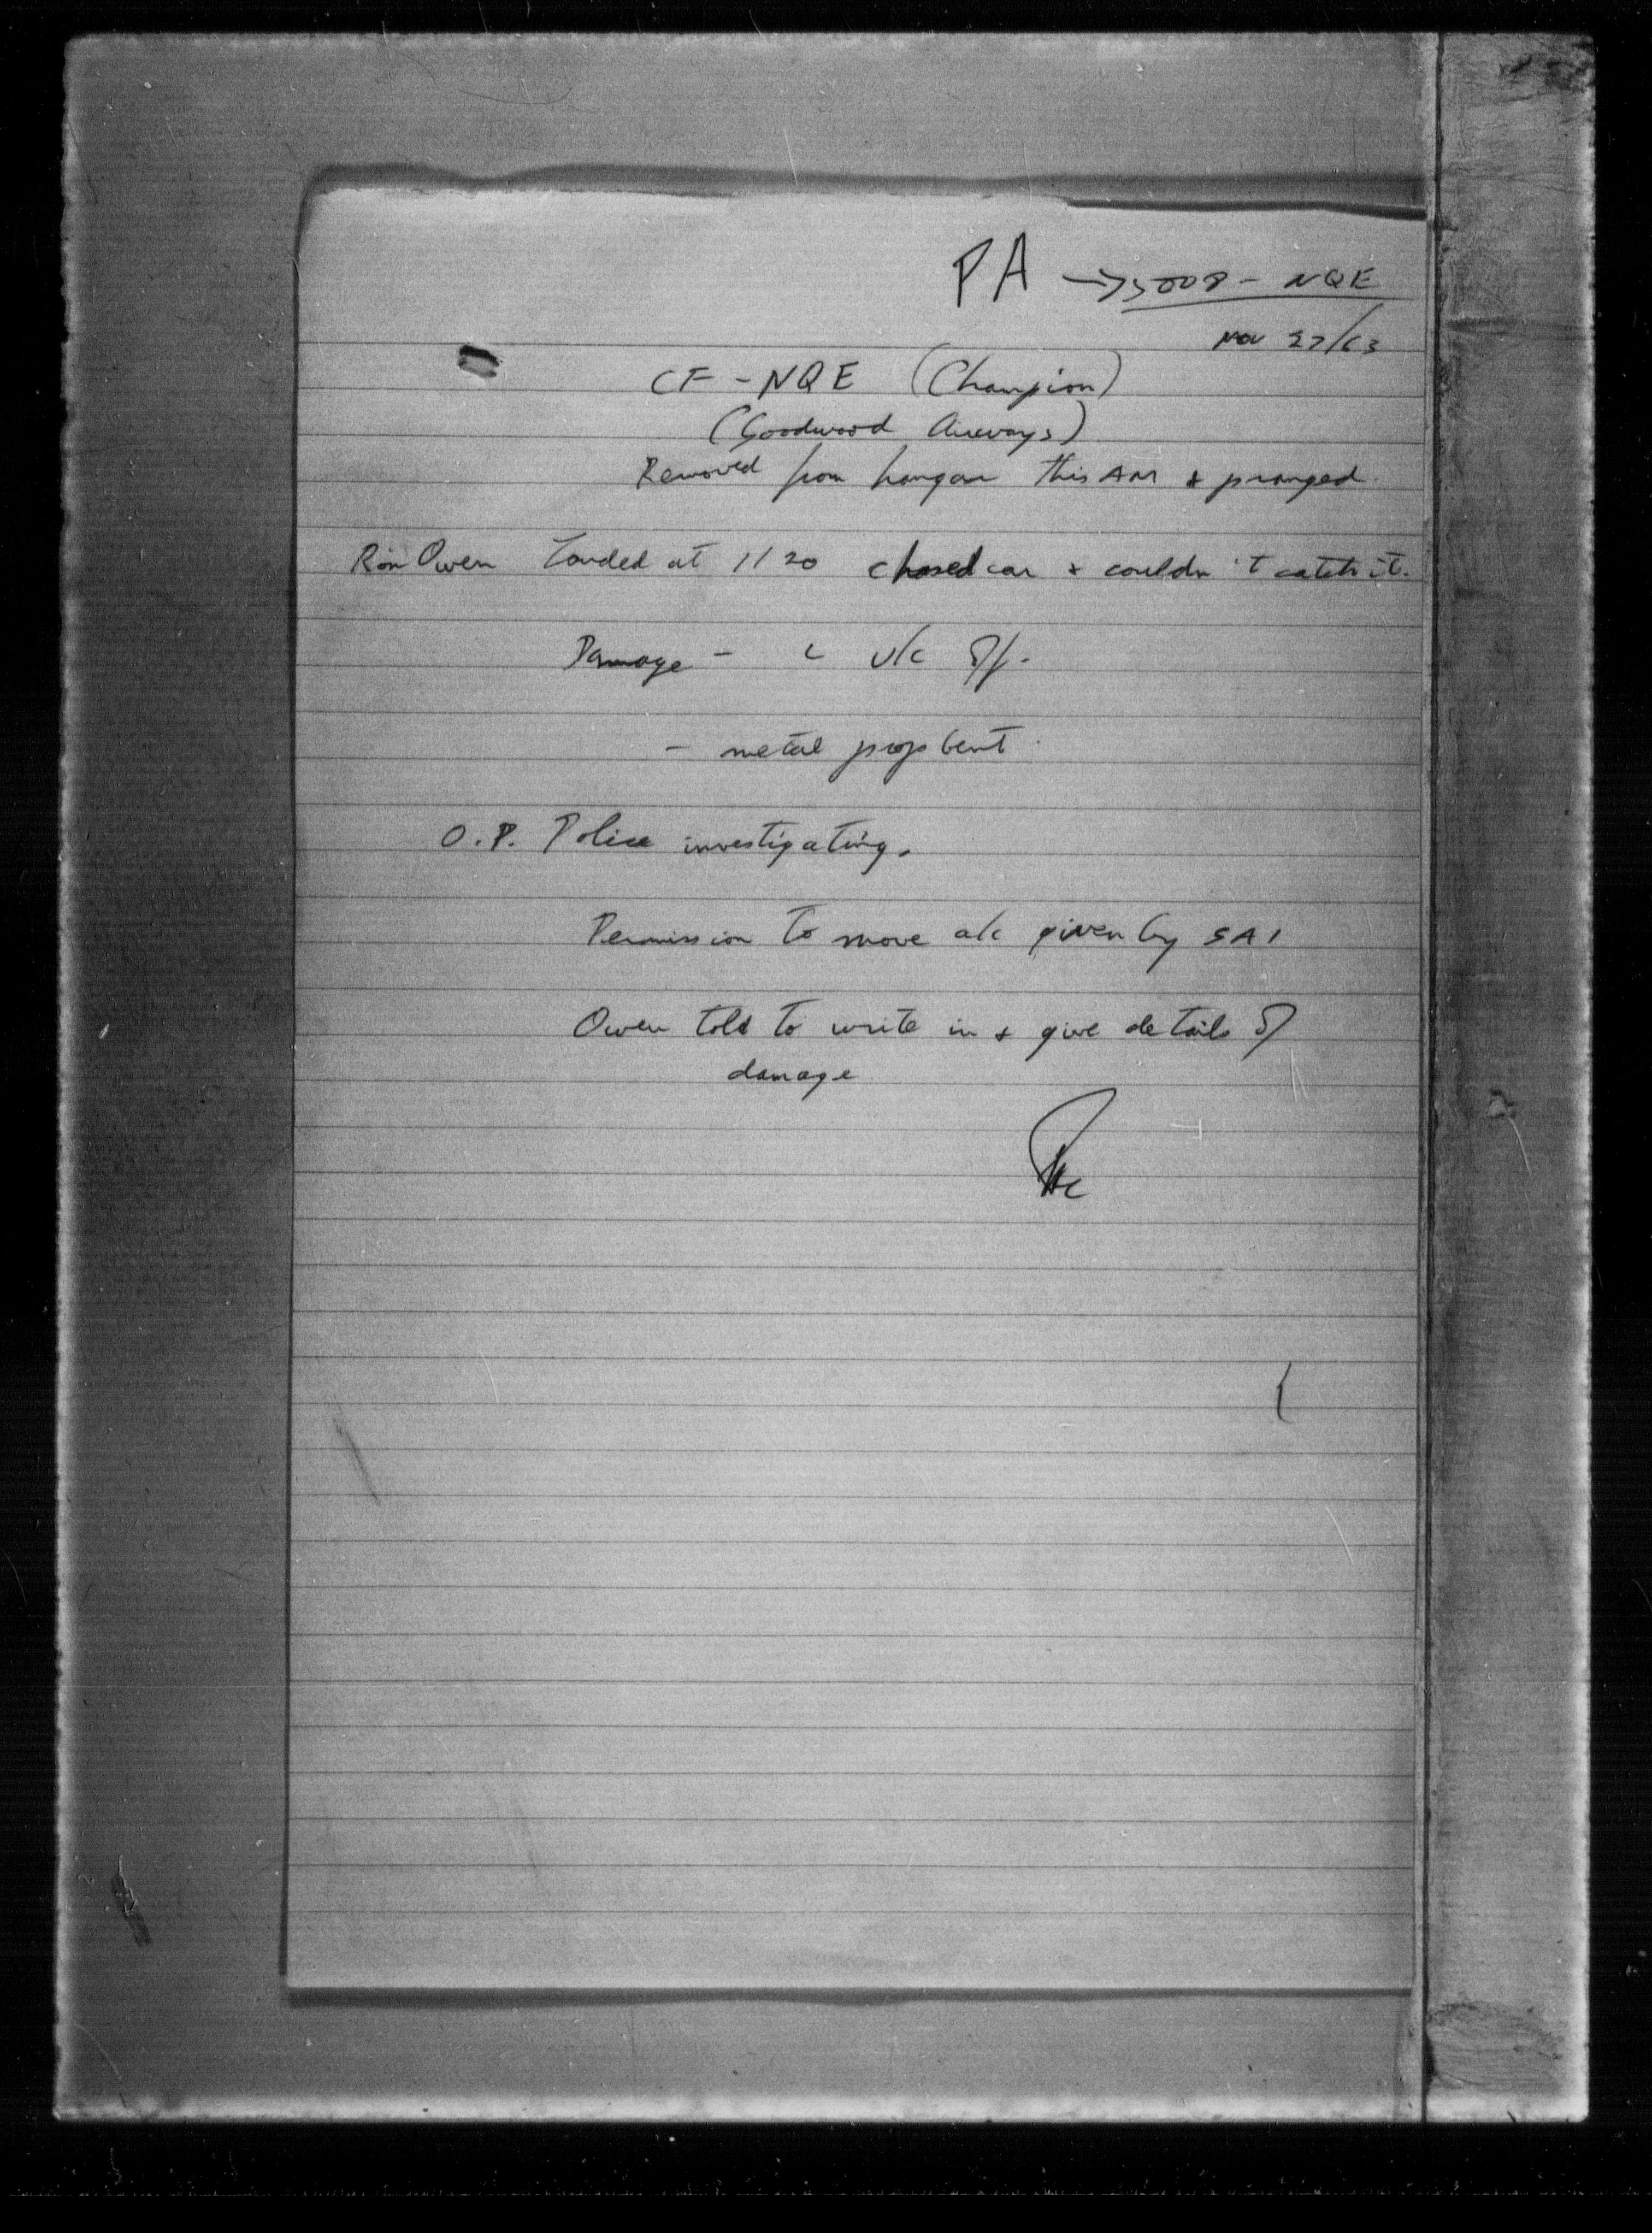 PA → 5008 - NQE
Nov 27/63
CF - NQE (Champion)
(Goodwood Airways)
Removed from hangar this AM & pranged.
Ron Owen Landed at 1120 chased car & couldn't catch it.
Damage - L u/c off.
- metal prop bent.
O.P. Police investigating.
Permission to move a/c given by SAI
Owen told to write in & give details of
damage